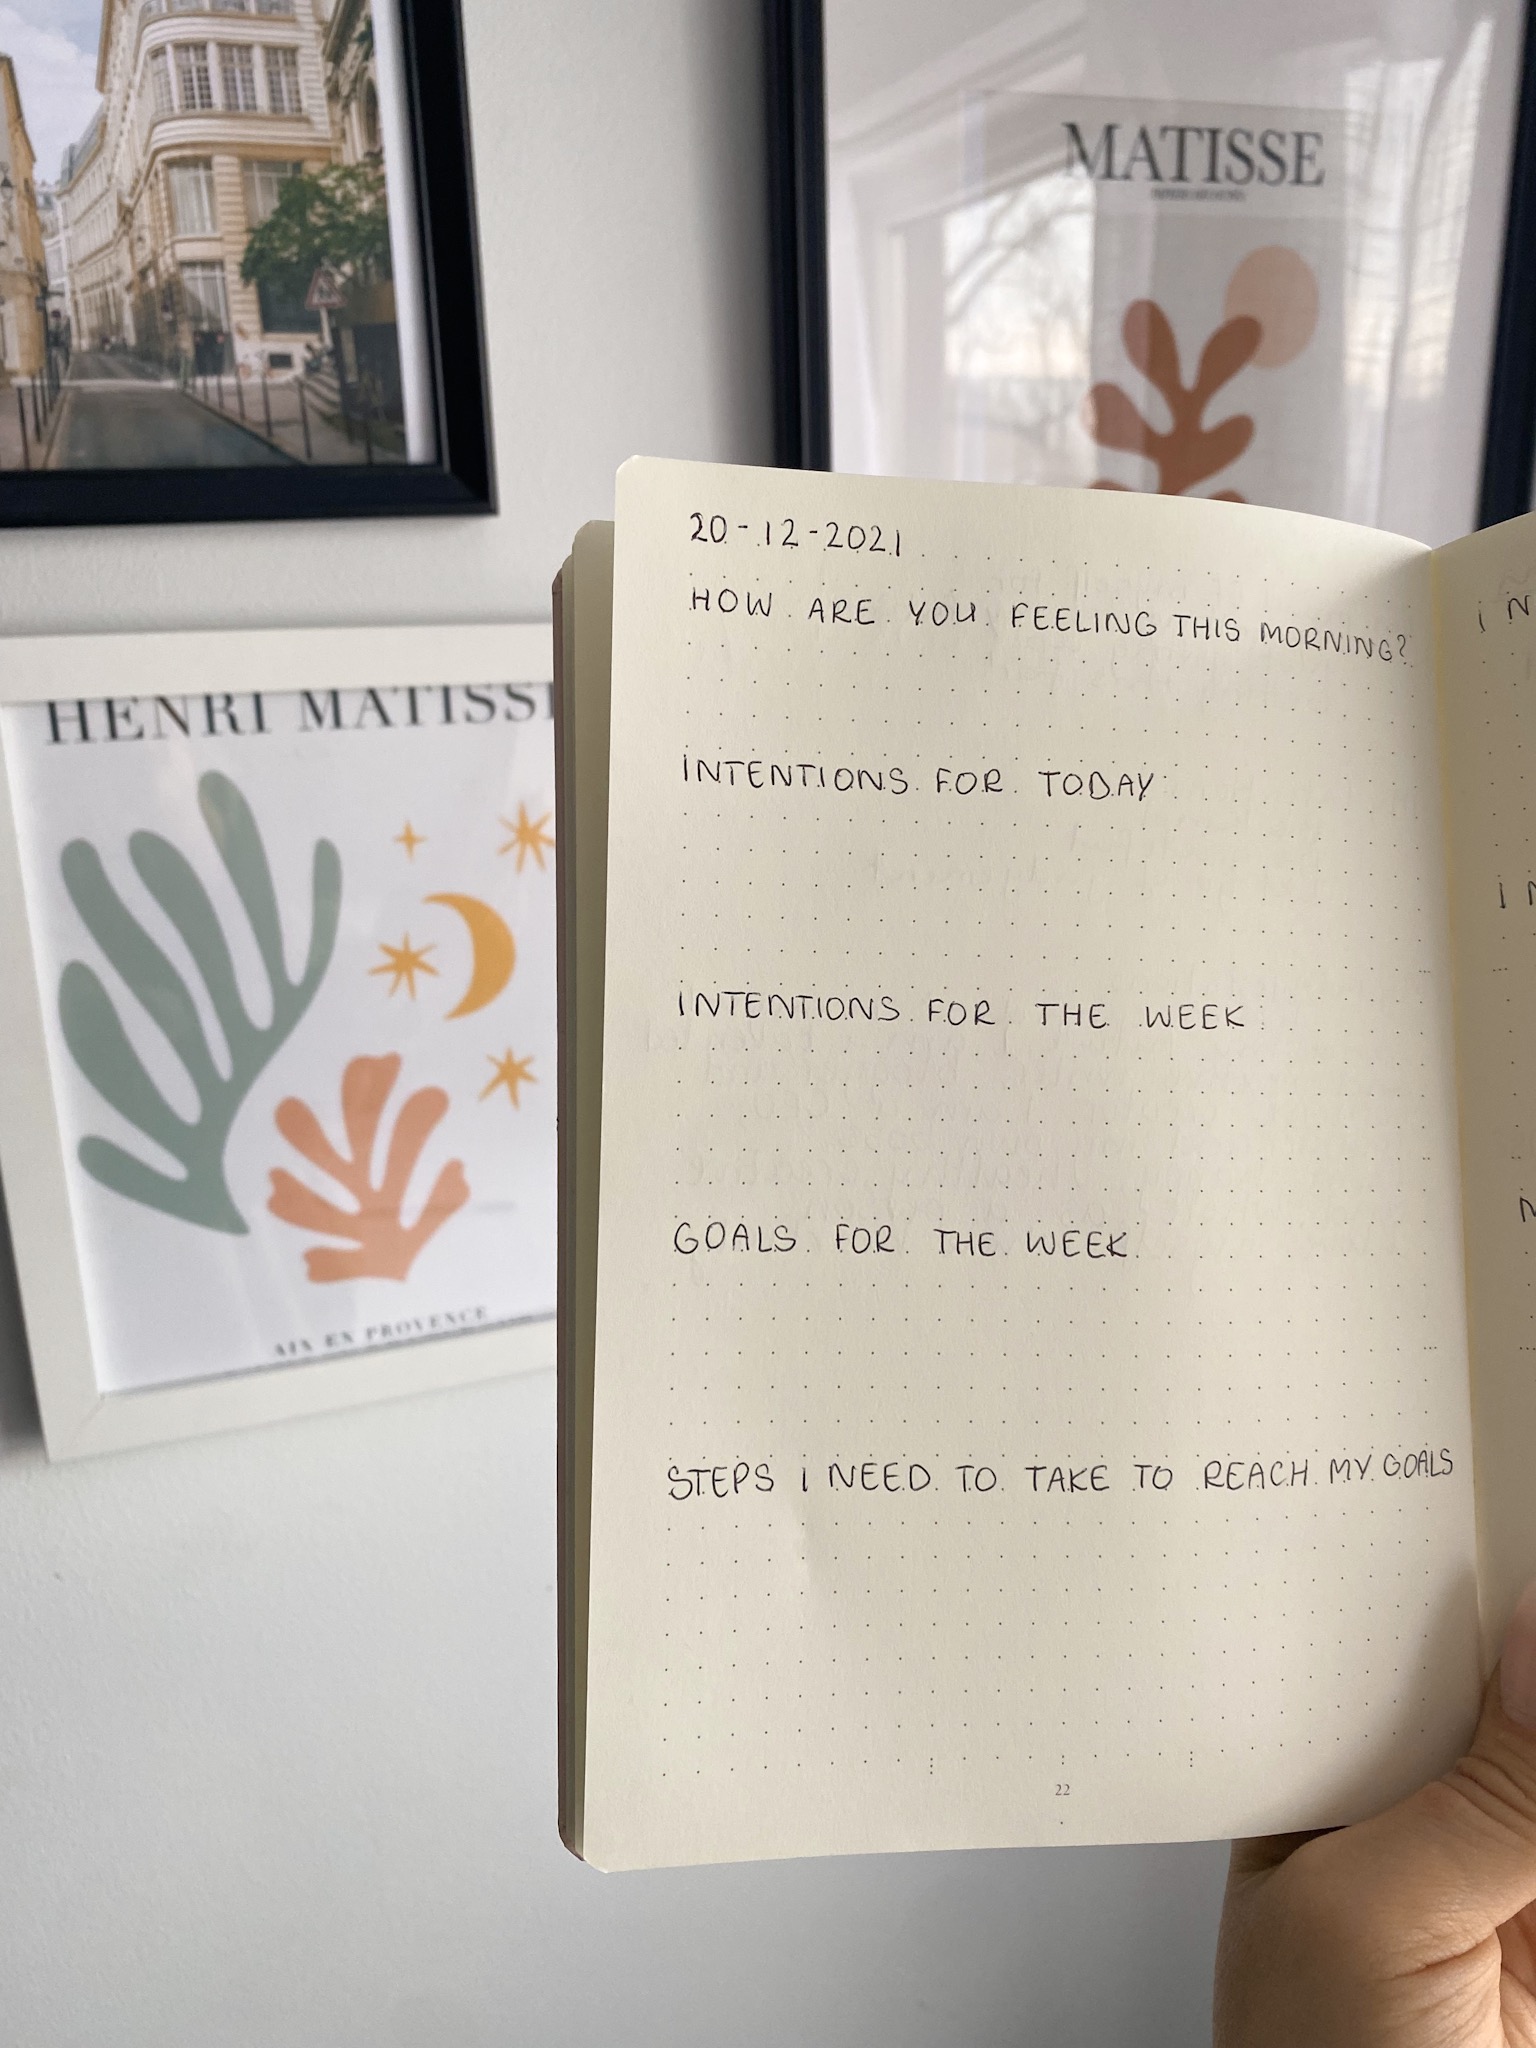 MATISSE
HENRI MATISSE
AIX EN PROVENCE
20-12-2021
HOW ARE YOU FEELING THIS MORNING?
INTENTIONS FOR TODAY
INTENTIONS FOR THE WEEK
GOALS FOR THE WEEK
STEPS I NEED TO TAKE TO REACH MY GOALS
22